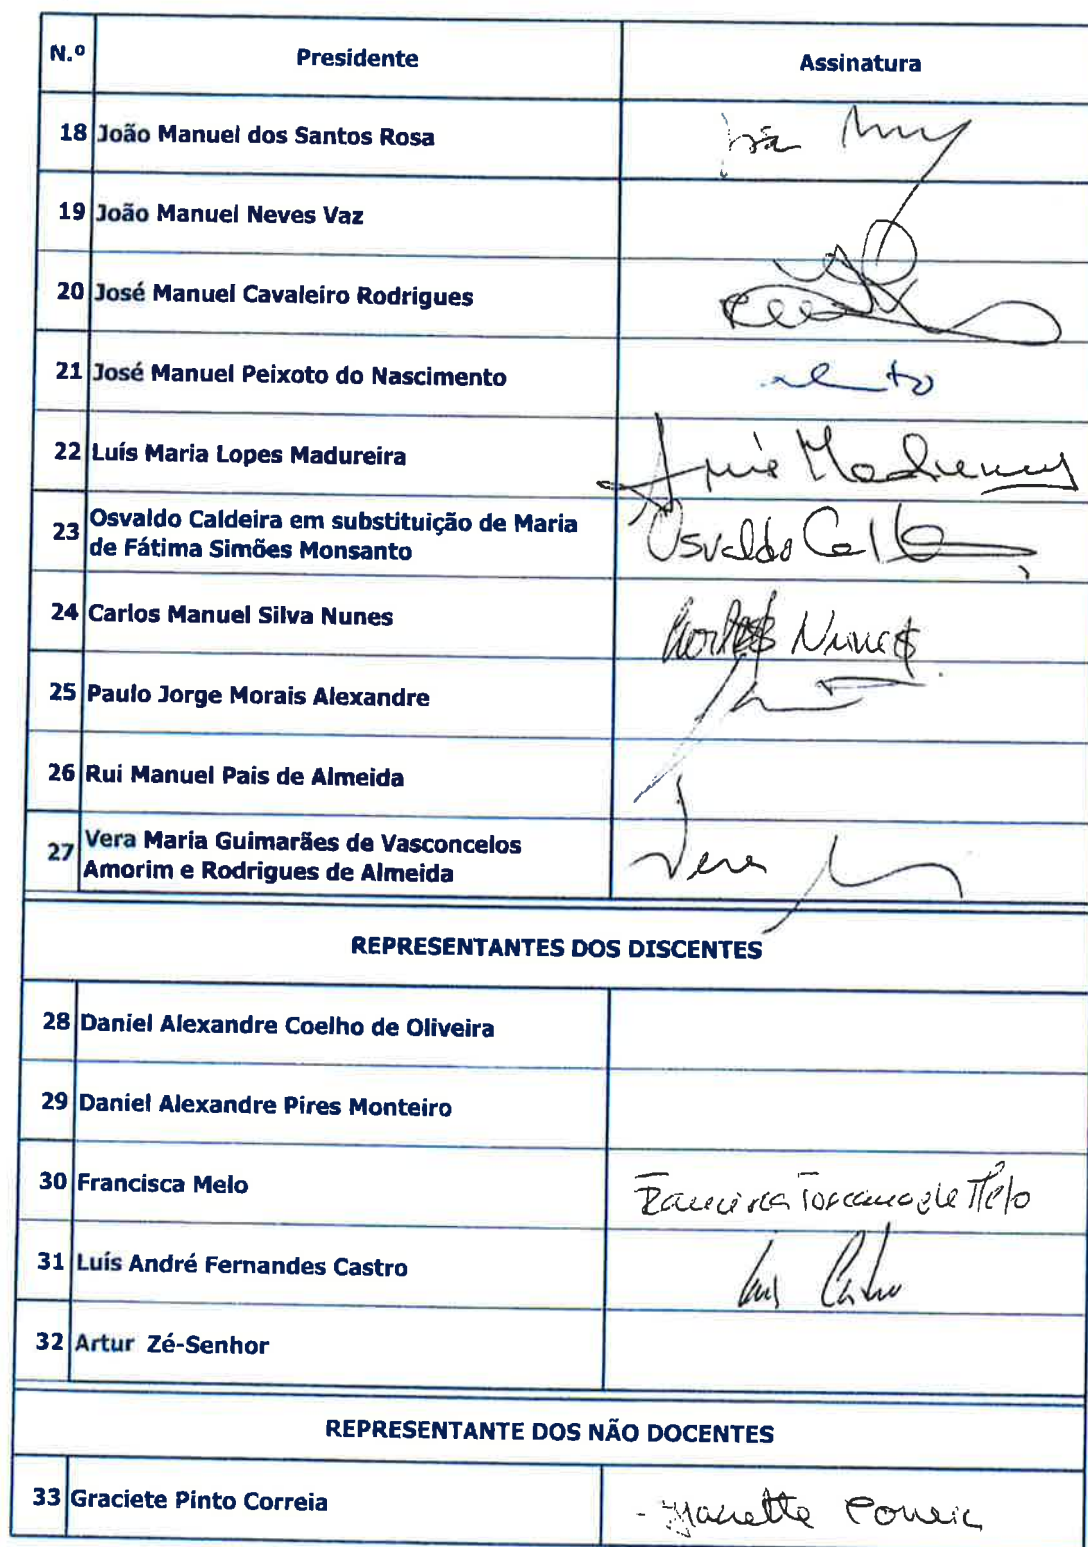 N.º Presidente Assinatura
18 João Manuel dos Santos Rosa
19 João Manuel Neves Vaz
20 José Manuel Cavaleiro Rodrigues
21 José Manuel Peixoto do Nascimento
22 Luís Maria Lopes Madureira Luís Madureira
23 Osvaldo Caldeira em substituição de Maria
de Fátima Simões Monsanto
Osvaldo
24 Carlos Manuel Silva Nunes Carlos Nunes
25 Paulo Jorge Morais Alexandre
26 Rui Manuel Pais de Almeida
27 Vera Maria Guimarães de Vasconcelos
Amorim e Rodrigues de Almeida
Vera
REPRESENTANTES DOS DISCENTES
28 Daniel Alexandre Coelho de Oliveira
29 Daniel Alexandre Pires Monteiro
30 Francisca Melo Francisca Toscano de Melo
31 Luís André Fernandes Castro Luís Castro
32 Artur Zé-Senhor
REPRESENTANTE DOS NÃO DOCENTES
33 Graciete Pinto Correia Correia